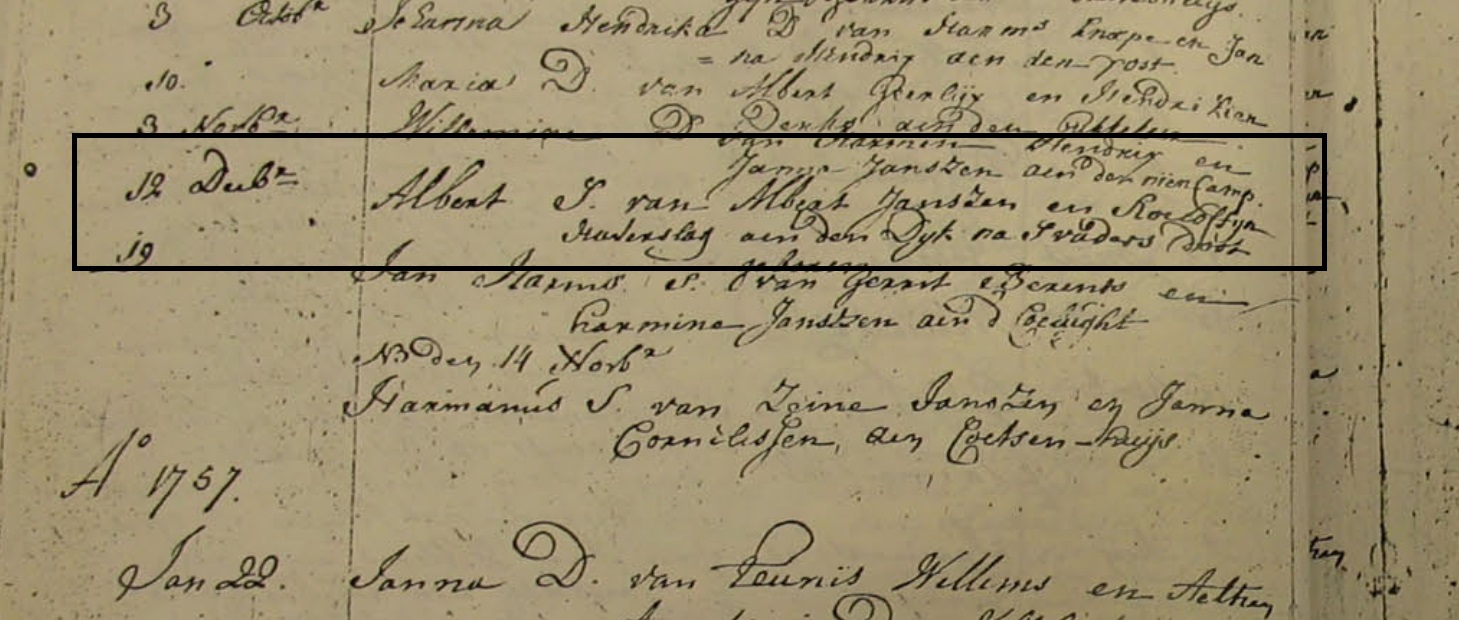 3 Octobr Johanna Hendrika D van Harms Knope en Jan
= na Hendrix aen den Post
10. Maria D. van Albert Geerlijx en Hendri kien
3 Novbr Willemina D Derks aen den
van Harmen Hendrix en
Janna Janszen aen den nien Camp.
12 Decbr Albert S. van Albert Janszen en Roeloffjn
Haverslag aen den Dyk na S vaders doot
geboren
19 Jan Harms S. van Gerrit Berents en
harmina Janszen aen d
NB den 14 Novbr
Harmanus S. van Zeine Janszen en Janna
Cornelissen, aen Coetsen-huijs
Ao 1757.
Jan 22. Janna D. van Teunis Willems en Aeltien